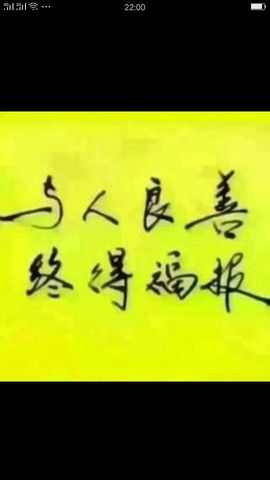 22:00
与人良善
终得福报